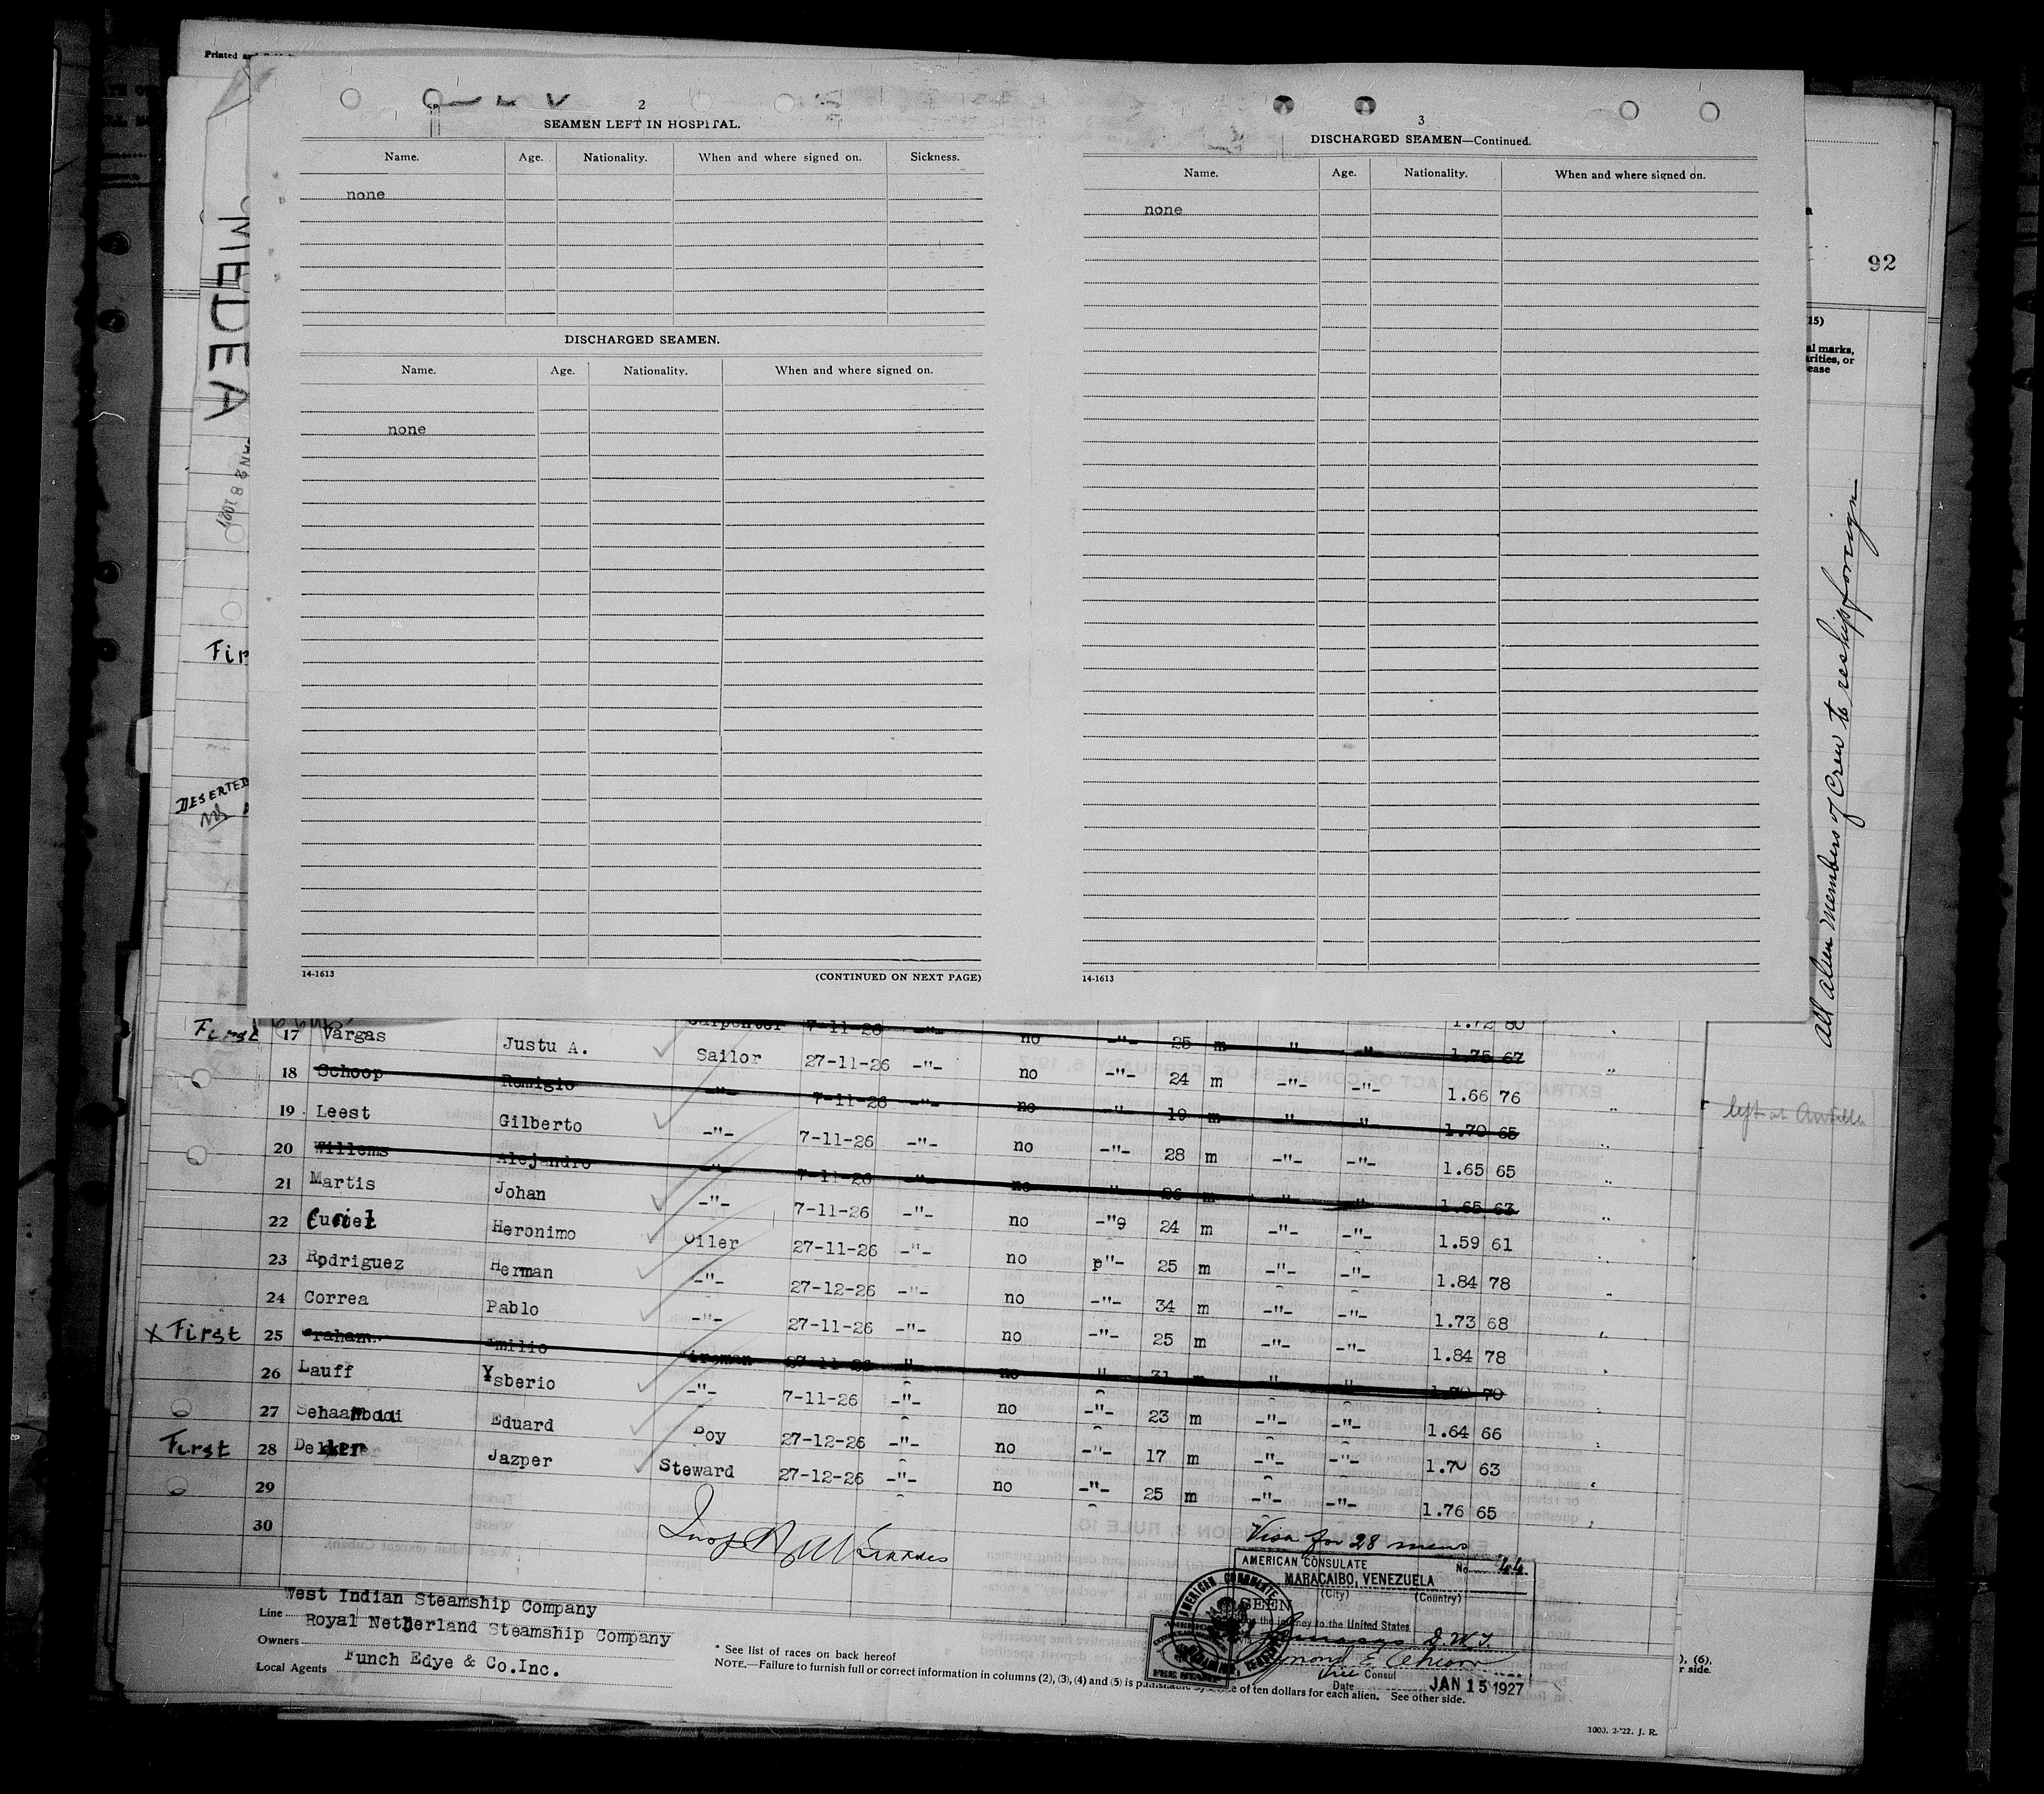 Printed
2
SEAMEN LEFT IN HOSPITAL.
Name. Age. Nationality. When and where signed on. Sickness.
none
DISCHARGED SEAMEN.
Name. Age. Nationality. When and where signed on.
none
14-1613 (CONTINUED ON NEXT PAGE)
3
DISCHARGED SEAMEN—Continued.
Name. Age. Nationality. When and where signed on.
none
14-1613
MEDEA
Fir
DESERTED
92
(15)
al marks,
arities, or
ease
All alien members of Crew to reship foreign
left at Antilla
Carpenter 7-11-26 -"- no -"- 25 m -"- -"- 1.75 67
1.72 80
First 17 Vargas Justu A. Sailor 27-11-26 -"- no -"- 24 m -"- -"- 1.66 76
18 Schoop Remigio -"- 7-11-26 -"- no -"- 19 m -"- -"- 1.70 65
19 Leest Gilberto -"- 7-11-26 -"- no -"- 28 m -"- -"- 1.65 65
20 Willems Alejandro -"- 7-11-26 -"- no " 26 m " " 1.65 63
21 Martis Johan -"- 7-11-26 -"- no -"9 24 m -"- -"- 1.59 61
22 Curiel Heronimo Oiler 27-11-26 -"- no p"- 25 m -"- -"- 1.84 78
23 Rodriguez Herman -"- 27-12-26 -"- no -"- 34 m -"- -"- 1.73 68
24 Correa Pablo -"- 27-11-26 -"- no -"- 25 m -"- -"- 1.84 78
x First 25 Graham Emilio Fireman 27-11-26 " no " 31 m " " 1.70 70
26 Lauff Ysberio -"- 7-11-26 -"- no -"- 23 m -"- -"- 1.64 66
27 Eduard Boy 27-12-26 -"- no -"- 17 m -"- -"- 1.70 63
First 28 Dekker Jazper Steward 27-12-26 -"- no -"- 25 m -"- -"- 1.76 65
29
30
Visa for 28 mens
AMERICAN CONSULATE No. 44
MARACAIBO, VENEZUELA
(City) (Country)
SEEN
For the journey to the United States
Consul
Date JAN 15 1927
AMERICAN CONSULATE
FEE STAMP
Line West Indian Steamship Company
Owners Royal Netherland Steamship Company
Local Agents Funch Edye & Co.Inc.
* See list of races on back hereof
NOTE.—Failure to furnish full or correct information in columns (2), (3), (4) and (5) is of ten dollars for each alien. See other side.
1000. 2-'22. J. R.
), (6).
r side.